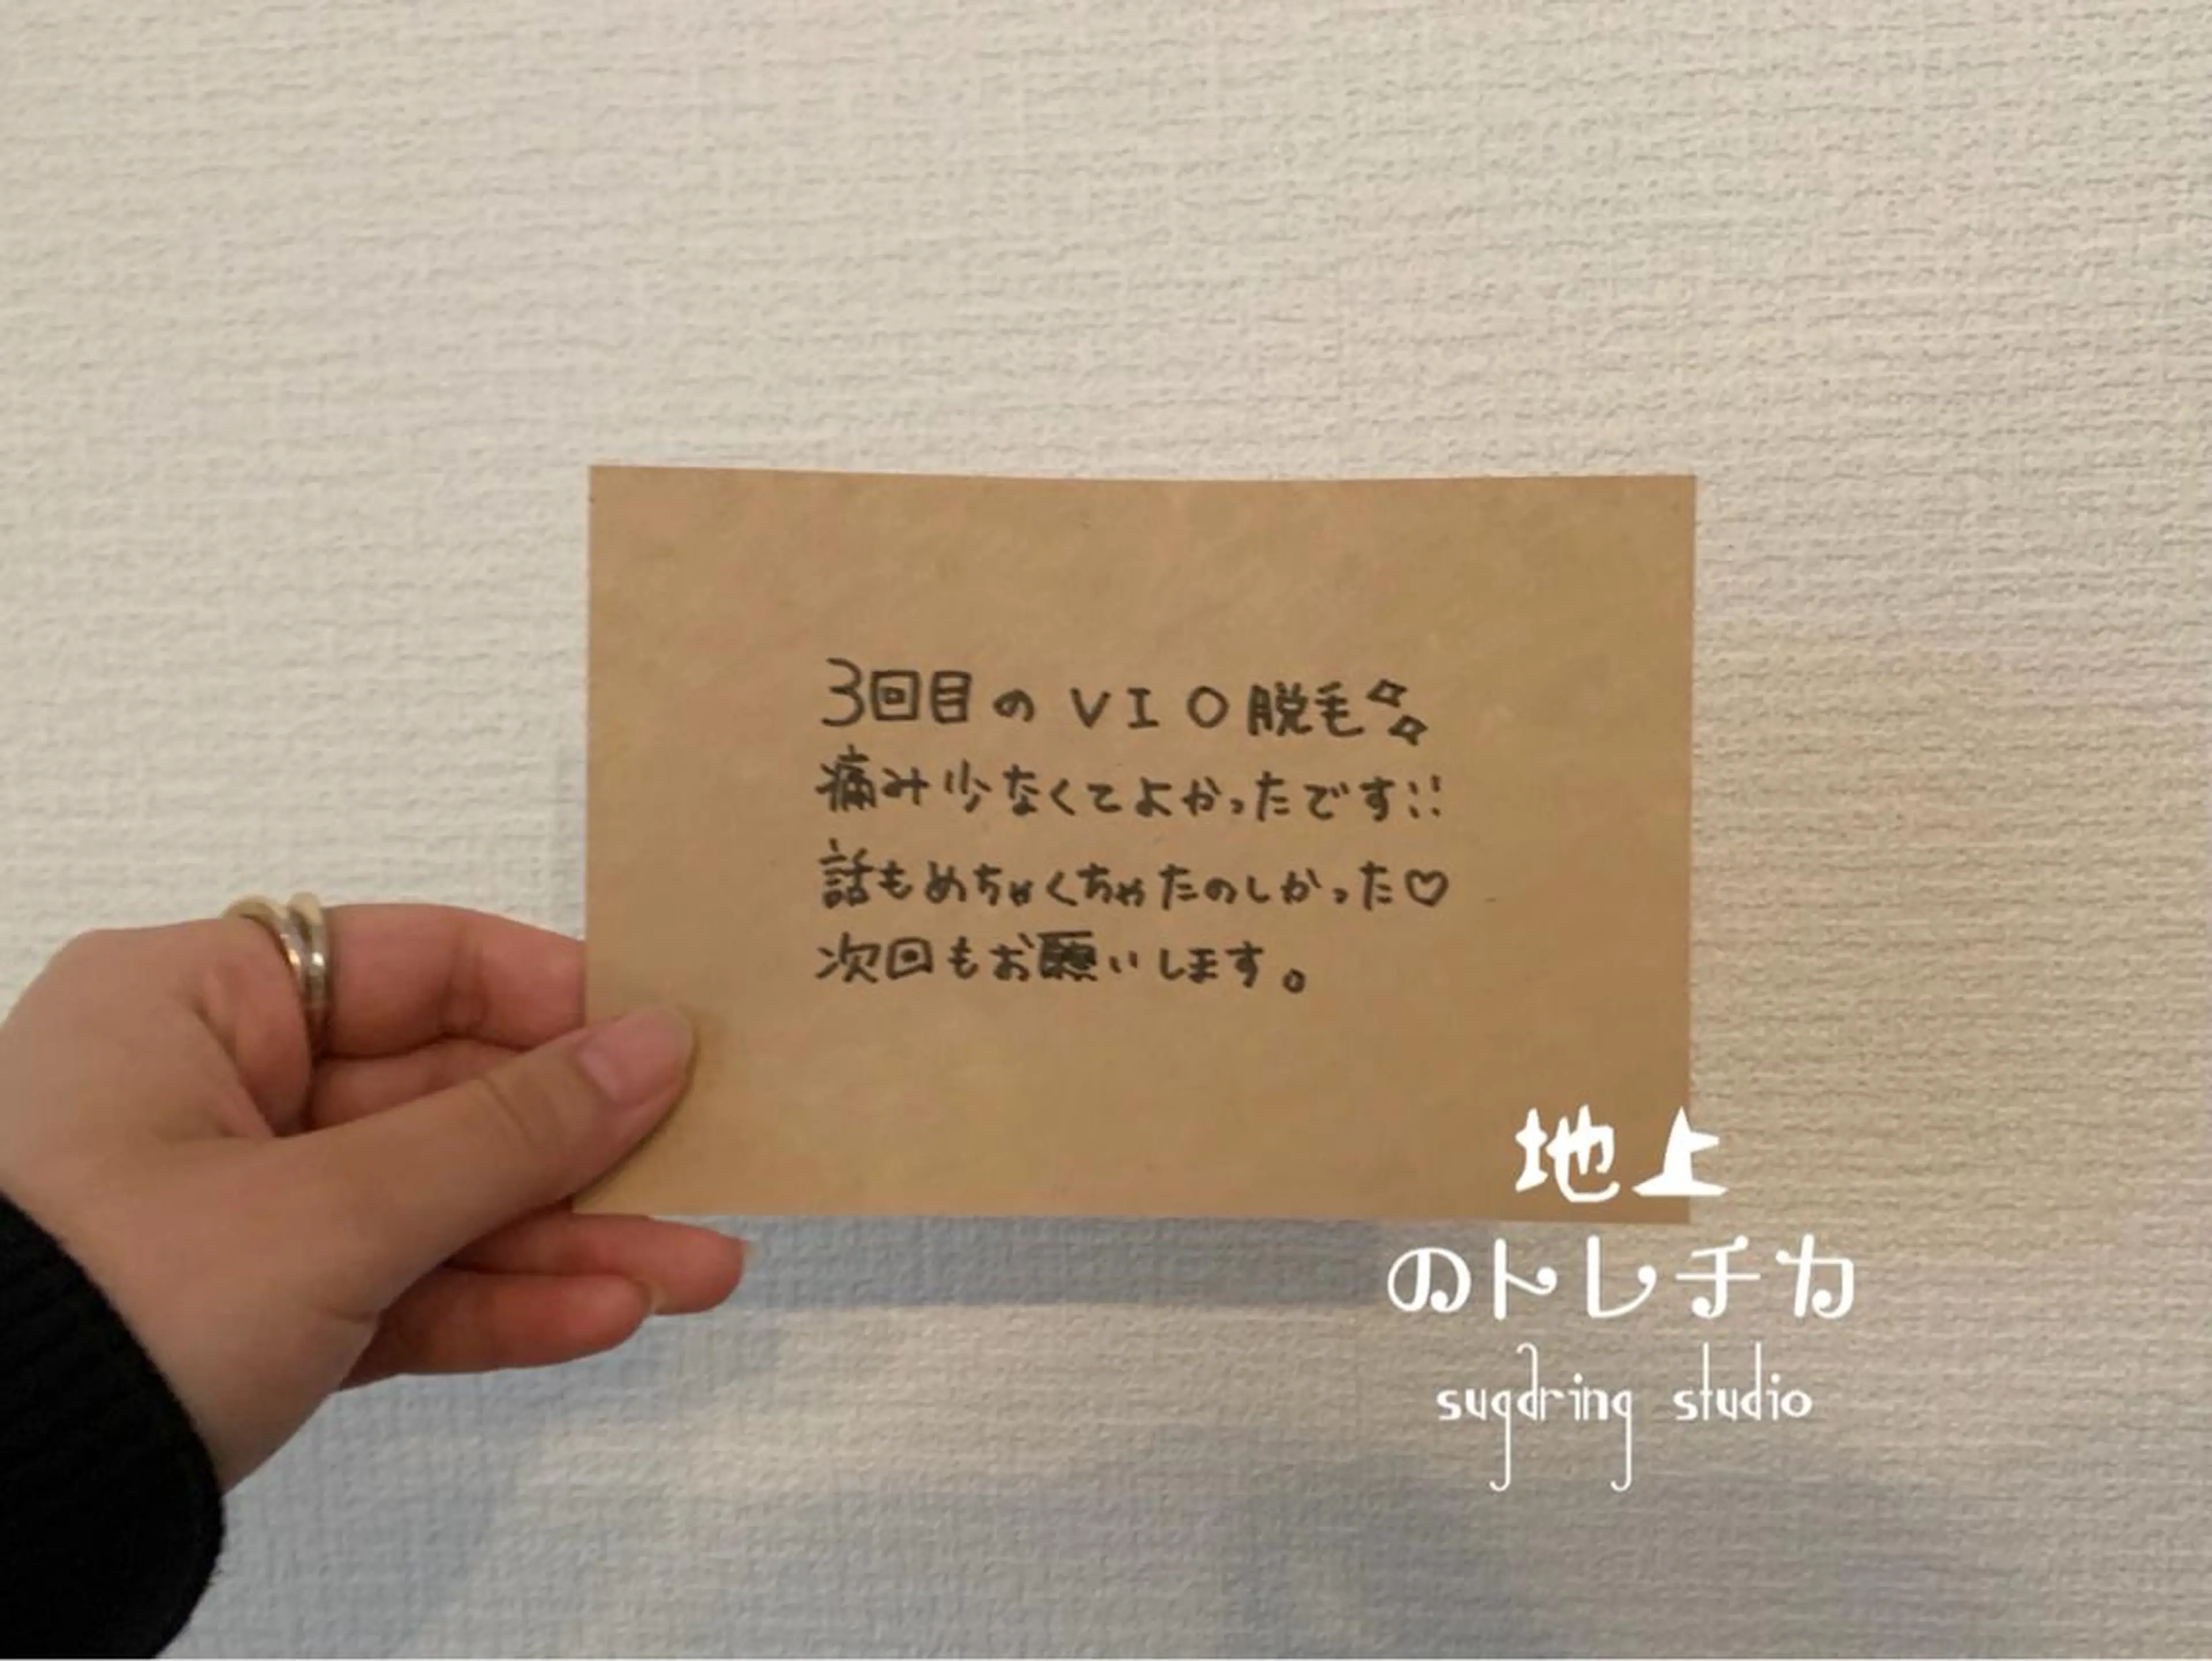 3回目のVIO脱毛✨
痛み少なくてよかったです!!
話もめちゃくちゃたのしかった♡
次回もお願いします。
地上
のトレチカ
sugaring studio